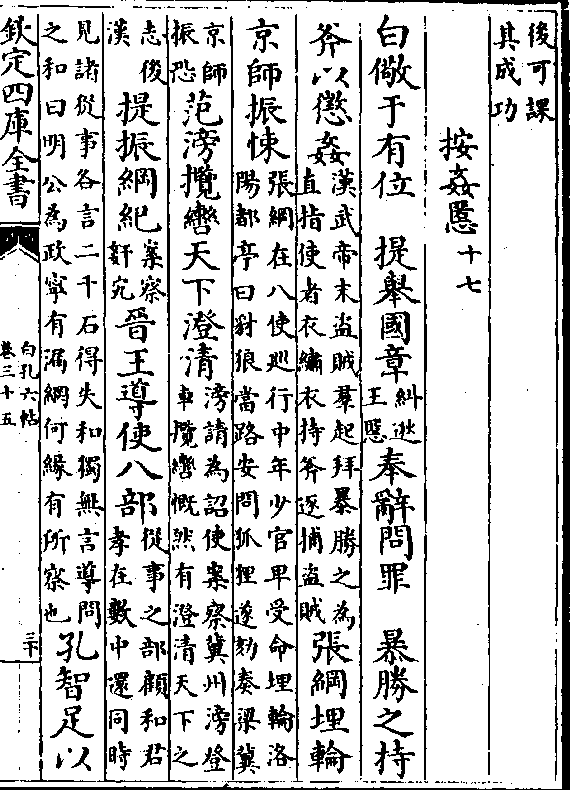 後可課
其成功
按姦慝十七
白儆于有位　提舉國章
糾逖
王慝
奉辭問罪　暴勝之持
斧以懲姦
漢武帝末盜賊羣起拜暴勝之為
直指使者衣繡衣持斧逐捕盜賊
張綱埋輪
京師振悚
張綱在八使巡行中年少官卑受命埋輪洛
陽都亭曰豺狼當路安問狐狸遂劾奏梁冀
京師
振恐
范滂攬轡天下澄清
滂請為詔使案察冀州滂登
車攬轡慨然有澄清天下之
志後
漢
提振綱紀
案察
姧宄
晉王導使八部
從事之部顧和君
孝在數中還同時
見諸從事各言二千石得失和獨無言導問
之和曰明公為政寧有漏網何緣有所察也
孔智足以
欽定四庫全書
白孔六帖
卷三十五
三十